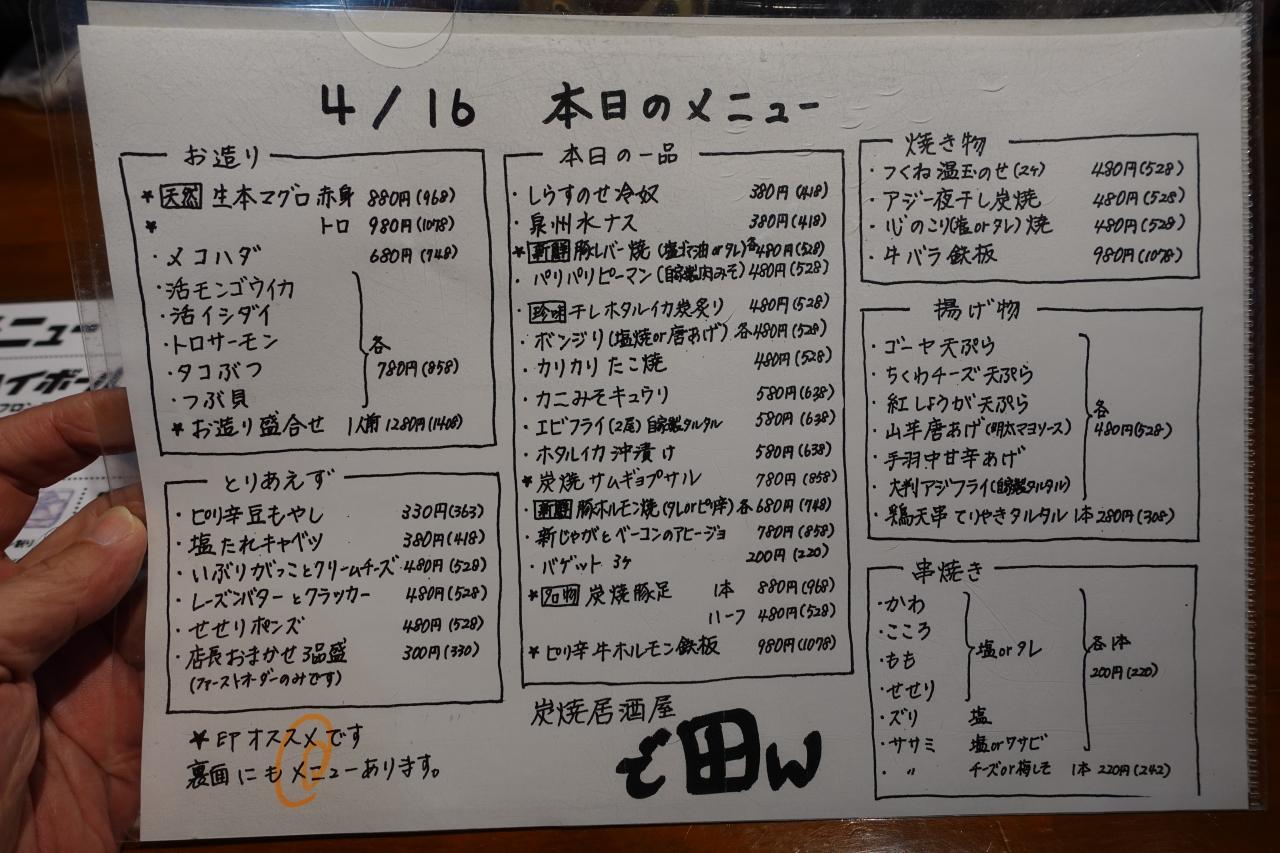 4/16 本日のメニュー
お造り
★天然 生本マグロ 赤身 880円(968)
★ トロ 980円(1078)
・メコハダ 680円(748)
・活モンゴウイカ
・活イシダイ
・トロサーモン
・タコぶつ
・つぶ貝
各
780円(858)
★お造り盛合せ 1人前 1280円(1408)
とりあえず
・ピリ辛豆もやし 330円(363)
・塩たれキャベツ 380円(418)
・いぶりがっことクリームチーズ 480円(528)
・レーズンバターとクラッカー 480円(528)
・せせりポンズ 480円(528)
・店長おまかせ3品盛 300円(330)
(ファーストオーダーのみです)
★印オススメです
裏面にもメニューあります。
本日の一品
・しらすのせ冷奴 380円(418)
・泉州水ナス 380円(418)
★新鮮 豚レバー焼(塩ゴマ油orタレ)各480円(528)
・パリパリピーマン(自家製肉みそ)480円(528)
・珍味 干しホタルイカ炭炙り 480円(528)
・ボンジリ(塩焼or唐あげ)各480円(528)
・カリカリたこ焼 480円(528)
・カニみそキュウリ 580円(638)
・エビフライ(2尾)自家製タルタル 580円(638)
・ホタルイカ沖漬け 580円(638)
★炭焼サムギョプサル 780円(858)
・新鮮 豚ホルモン焼(タレorピリ辛)各680円(748)
・新じゃがとベーコンのアヒージョ 780円(858)
・バゲット 3ヶ 200円(220)
★名物 炭焼豚足 1本 880円(968)
ハーフ 480円(528)
★ピリ辛牛ホルモン鉄板 980円(1078)
炭焼居酒屋
焼き物
・つくね温玉のせ(2ヶ) 480円(528)
・アジ一夜干し炭焼 480円(528)
・心のこり(塩orタレ)焼 480円(528)
・牛バラ鉄板 980円(1078)
揚げ物
・ゴーヤ天ぷら
・ちくわチーズ天ぷら
・紅しょうが天ぷら
・山芋唐あげ(明太マヨソース)
・手羽中甘辛あげ
・大判アジフライ(自家製タルタル)
各
480円(528)
・鶏天串てりやきタルタル 1本 280円(308)
串焼き
・かわ
・こころ
・もも
・せせり
塩orタレ
・ズリ 塩
・ササミ 塩orワサビ
各1本
200円(220)
・〃 チーズor梅しそ 1本 220円(242)